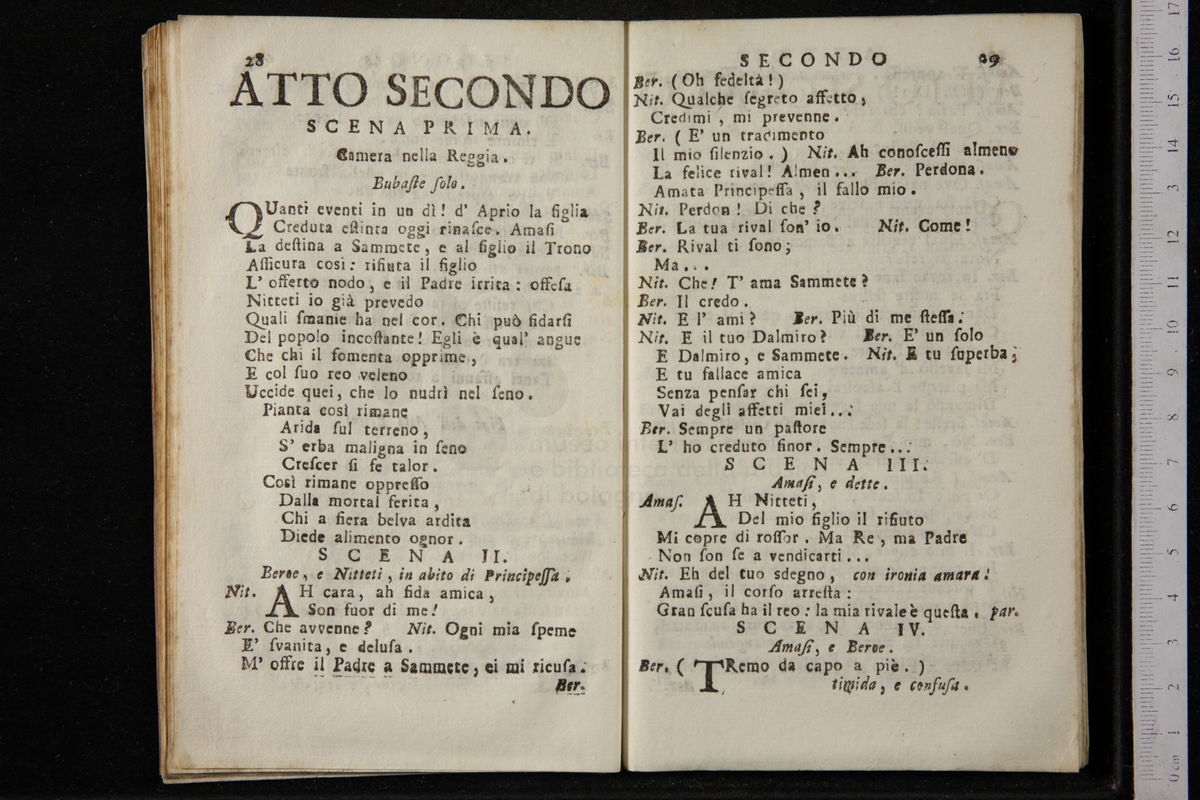 28
ATTO SECONDO
SCENA PRIMA.
Camera nella Reggia.
Bubaſte ſolo.
QUanti eventi in un dì! d' Aprio la figlia
Creduta eſtinta oggi rinaſce. Amaſi
La deſtina a Sammete, e al figlio il Trono
Aſſicura così: rifiuta il figlio
L' offerto nodo, e il Padre irrita: offeſa
Nitteti io già prevedo
Quali ſmanie ha nel cor. Chi può fidarſi
Del popolo incoſtante! Egli è qual' angue
Che chi il fomenta opprime,
E col ſuo reo veleno
Uccide quei, che lo nudrì nel ſeno.
Pianta così rimane
Arida ſul terreno,
S' erba maligna in ſeno
Creſcer ſi fe talor.
Così rimane oppreſſo
Dalla mortal ferita,
Chi a fiera belva ardita
Diede alimento ognor.
SCENA II.
Beroe, e Nitteti, in abito di Principeſſa.
Nit. AH cara, ah fida amica,
Son fuor di me!
Ber. Che avvenne? Nit. Ogni mia ſpeme
E' ſvanita, e deluſa.
M' offre il Padre a Sammete, ei mi ricuſa.
Ber.
SECONDO 29
Ber. (Oh fedeltà!)
Nit. Qualche ſegreto affetto,
Credimi, mi prevenne.
Ber. (E' un tradimento
Il mio ſilenzio.) Nit. Ah conoſceſſi almeno
La felice rival! Almen... Ber. Perdona.
Amata Principeſſa, il fallo mio.
Nit. Perdon! Di che?
Ber. La tua rival ſon' io. Nit. Come!
Ber. Rival ti ſono;
Ma...
Nit. Che! T' ama Sammete?
Ber. Il credo.
Nit. E l' ami? Ber. Più di me ſteſſa.
Nit. E il tuo Dalmiro? Ber. E' un ſolo
E Dalmiro, e Sammete. Nit. E tu ſuperba;
E tu fallace amica
Senza penſar chi ſei,
Vai degli affetti miei...
Ber. Sempre un paſtore
L' ho creduto finor. Sempre...
SCENA III.
Amaſi, e dette.
Amaſ. AH Nitteti,
Del mio figlio il rifiuto
Mi copre di roſſor. Ma Re, ma Padre
Non ſon ſe a vendicarti...
Nit. Eh del tuo sdegno, con ironia amara!
Amaſi, il corſo arreſta:
Gran ſcuſa ha il reo: la mia rivale è queſta. par.
SCENA IV.
Amaſi, e Beroe.
Ber. (TRemo da capo a piè.)
timida, e confuſa.